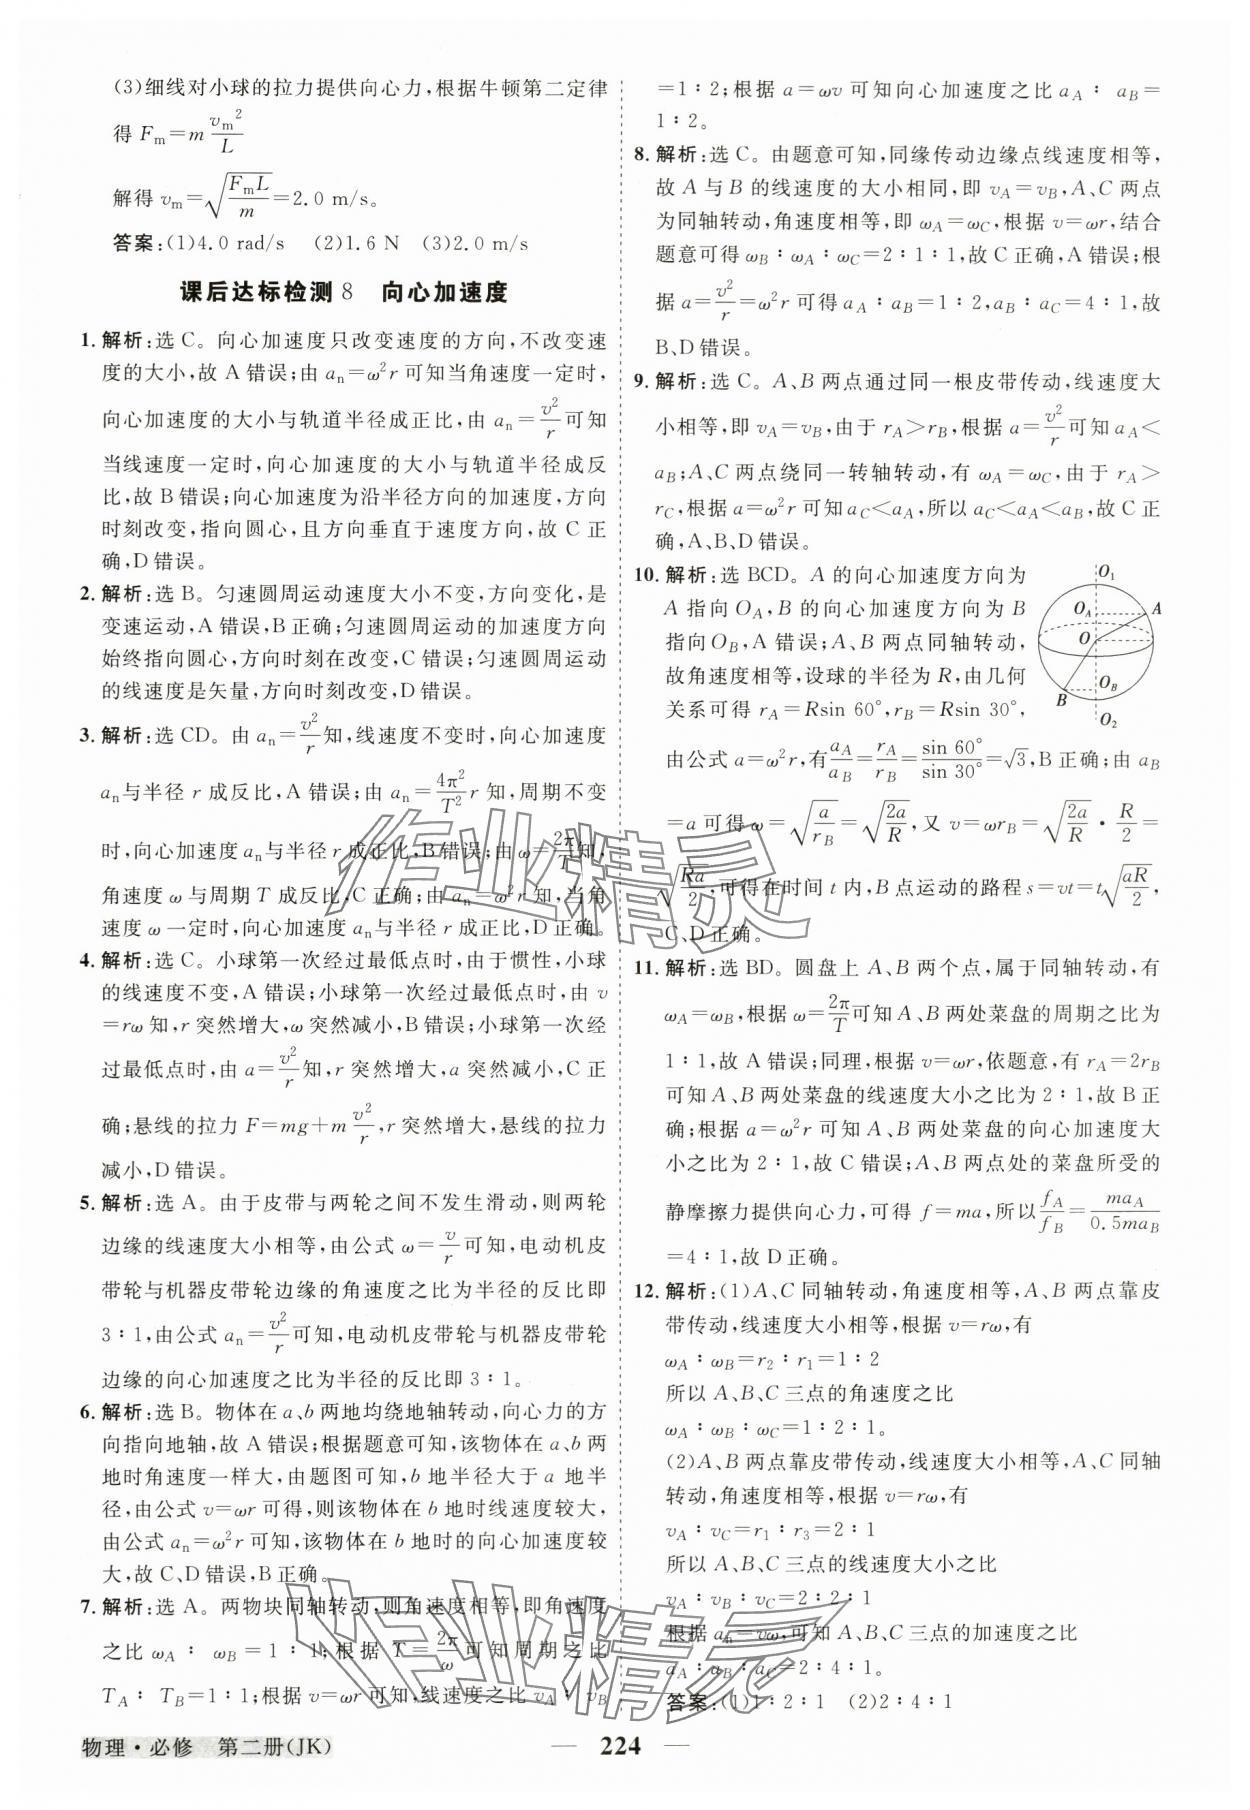 (3)细线对小球的拉力提供向心力,根据牛顿第二定律
得 Fm=m vm²/L
解得 vm=√(FmL/m)=2.0 m/s。
答案:(1)4.0 rad/s (2)1.6 N (3)2.0 m/s
课后达标检测 8 向心加速度
1. 解析:选 C。向心加速度只改变速度的方向,不改变速
度的大小,故 A 错误;由 an=ω²r 可知当角速度一定时,
向心加速度的大小与轨道半径成正比,由 an=v²/r可知
当线速度一定时,向心加速度的大小与轨道半径成反
比,故 B 错误;向心加速度为沿半径方向的加速度,方向
时刻改变,指向圆心,且方向垂直于速度方向,故 C 正
确,D 错误。
2. 解析:选 B。匀速圆周运动速度大小不变,方向变化,是
变速运动,A 错误,B 正确;匀速圆周运动的加速度方向
始终指向圆心,方向时刻在改变,C 错误;匀速圆周运动
的线速度是矢量,方向时刻改变,D 错误。
3. 解析:选 CD。由 an=v²/r知,线速度不变时,向心加速度
an与半径 r 成反比,A 错误;由 an=4π²/T² r 知,周期不变
时,向心加速度 an与半径 r 成正比,B 错误;由 ω=2π/T知,
角速度 ω 与周期 T 成反比,C 正确;由 an=ω²r 知,当角
速度 ω 一定时,向心加速度 an与半径 r 成正比,D 正确。
4. 解析:选 C。小球第一次经过最低点时,由于惯性,小球
的线速度不变,A 错误;小球第一次经过最低点时,由 v
=rω 知,r 突然增大,ω 突然减小,B 错误;小球第一次经
过最低点时,由 a=v²/r知,r 突然增大,a 突然减小,C 正
确;悬线的拉力 F=mg+m v²/r,r 突然增大,悬线的拉力
减小,D 错误。
5. 解析:选 A。由于皮带与两轮之间不发生滑动,则两轮
边缘的线速度大小相等,由公式 ω=v/r可知,电动机皮
带轮与机器皮带轮边缘的角速度之比为半径的反比即
3∶1,由公式 an=v²/r可知,电动机皮带轮与机器皮带轮
边缘的向心加速度之比为半径的反比即 3∶1。
6. 解析:选 B。物体在 a、b 两地均绕地轴转动,向心力的方
向指向地轴,故 A 错误;根据题意可知,该物体在 a、b 两
地时角速度一样大,由题图可知,b 地半径大于 a 地半
径,由公式 v=ωr 可得,则该物体在 b 地时线速度较大,
由公式 an=ω²r 可知,该物体在 b 地时的向心加速度较
大,故 C、D 错误,B 正确。
7. 解析:选 A。两物块同轴转动,则角速度相等,即角速度
之比 ωA∶ωB=1∶1;根据 T=2π/ω可知周期之比
TA∶TB=1∶1;根据 v=ωr 可知,线速度之比 vA∶vB
=1∶2;根据 a=ωv 可知向心加速度之比 aA∶aB=
1∶2。
8. 解析:选 C。由题意可知,同缘传动边缘点线速度相等,
故 A 与 B 的线速度的大小相同,即 vA=vB,A、C 两点
为同轴转动,角速度相等,即 ωA=ωC,根据 v=ωr,结合
题意可得 ωB∶ωA∶ωC=2∶1∶1,故 C 正确,A 错误。根
据 a=v²/r=ω²r 可得 aA∶aB=1∶2,aB∶aC=4∶1,故
B、D 错误。
9. 解析:选 C。A、B 两点通过同一根皮带传动,线速度大
小相等,即 vA=vB,由于 rA>rB,根据 a=v²/r可知 aA<
aB;A、C 两点绕同一转轴转动,有 ωA=ωC,由于 rA>
rC,根据 a=ω²r 可知 aC<aA,所以 aC<aA<aB,故 C 正
确,A、B、D 错误。
10. 解析:选 BCD。A 的向心加速度方向为
A 指向 OA,B 的向心加速度方向为 B
指向 OB,A 错误;A、B 两点同轴转动,
故角速度相等,设球的半径为 R,由几何
关系可得 rA=Rsin 60°,rB=Rsin 30°,
O1
OA
A
O
B
OB
O2
由公式 a=ω²r,有aA/aB=rA/rB=sin 60°/sin 30°=√3,B 正确;由 aB
=a 可得 ω=√(a/rB)=√(2a/R),又 v=ωrB=√(2a/R)·R/2=
√(Ra/2),可得在时间 t 内,B 点运动的路程 s=vt=t√(aR/2),
C、D 正确。
11. 解析:选 BD。圆盘上 A、B 两个点,属于同轴转动,有
ωA=ωB,根据 ω=2π/T可知 A、B 两处菜盘的周期之比为
1∶1,故 A 错误;同理,根据 v=ωr,依题意,有 rA=2rB
可知 A、B 两处菜盘的线速度大小之比为 2∶1,故 B 正
确;根据 a=ω²r 可知 A、B 两处菜盘的向心加速度大
小之比为 2∶1,故 C 错误;A、B 两点处的菜盘所受的
静摩擦力提供向心力,可得 f=ma,所以fA/fB=maA/0.5maB
=4∶1,故 D 正确。
12. 解析:(1)A、C 同轴转动,角速度相等,A、B 两点靠皮
带传动,线速度大小相等,根据 v=rω,有
ωA∶ωB=r2∶r1=1∶2
所以 A、B、C 三点的角速度之比
ωA∶ωB∶ωC=1∶2∶1。
(2)A、B 两点靠皮带传动,线速度大小相等,A、C 同轴
转动,角速度相等,根据 v=rω,有
vA∶vC=r1∶r3=2∶1
所以 A、B、C 三点的线速度大小之比
vA∶vB∶vC=2∶2∶1
根据 an=vω,可知 A、B、C 三点的加速度之比
aA∶aB∶aC=2∶4∶1。
答案:(1)1∶2∶1 (2)2∶4∶1
作业精灵
作业精灵
物理·必修 第二册(JK)
— 224 —